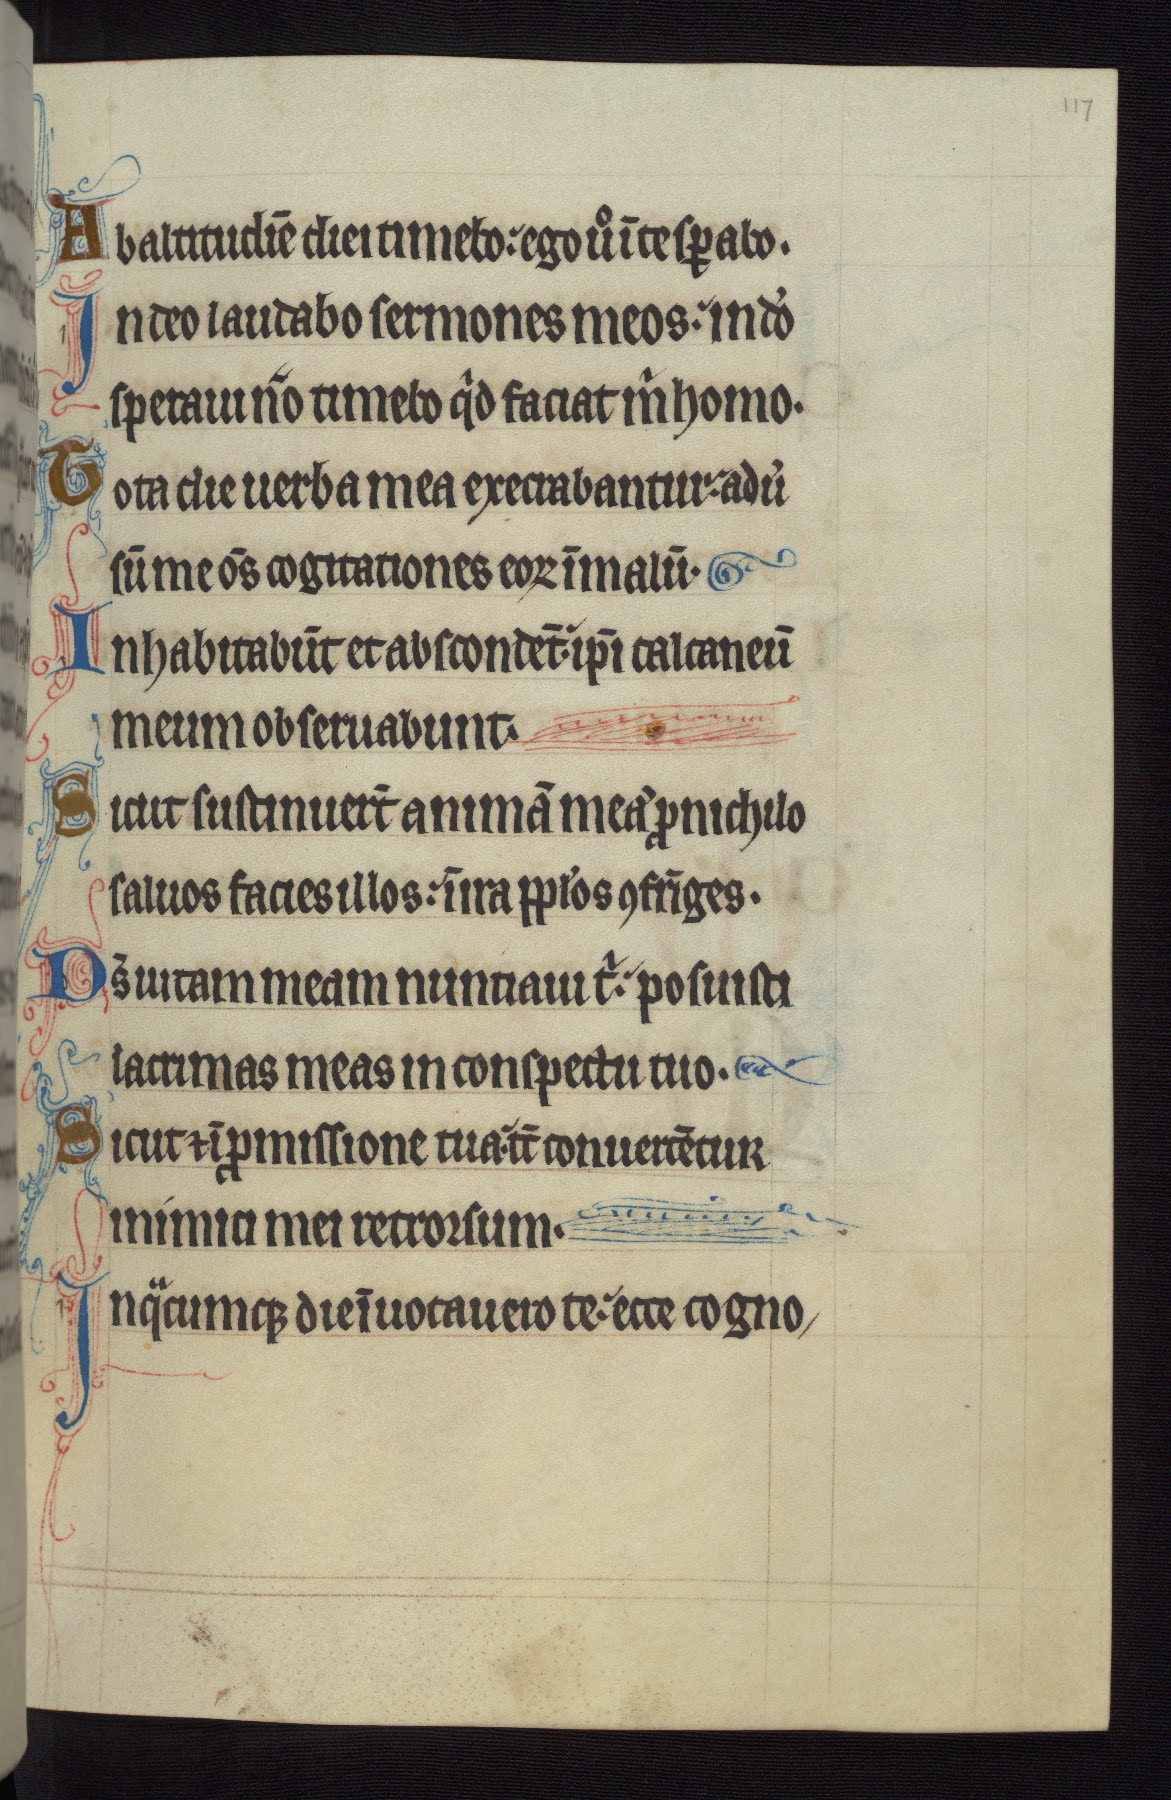 117
Ab altitudiē diei timebo: ego ůo ī te sꝑabo.
In deo laudabo sermones meos: in dō
speraui nō timebo qͥd faciat mͥ homo.
Tota die uerba mea execrabantur: adū
sū me om̄s cogitationes eoꝝ ī malū.
Inhabitabūt et abscondēt: ip̄i calcaneū
meum obseruabunt.
Sicut sustinuer̄t animā meā: ꝓ nichilo
saluos facies illos: ī ira pplo̕s ꝯfrīges.
Ds̄ uitam meam nuntiaui tͥ: posuisti
lacrimas meas in conspectu tuo.
Sicut ⁊ ī ꝓmissione tua: tc̄ conuertētur
inimici mei retrorsum.
In qͣcumqꝫ die īuocauero te: ecce cogno/